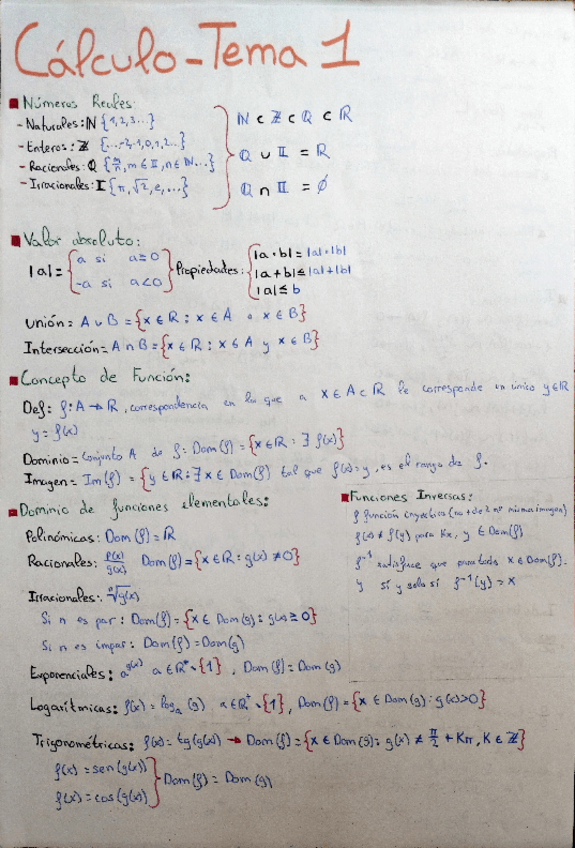 Cálculo - Tema 1
Números Reales:
- Naturales: ℕ {1,2,3...}
- Enteros: ℤ {...-2,-1,0,1,2...}
- Racionales: ℚ {m/n, m ∈ ℤ, n ∈ ℕ,...}
- Irracionales: 𝕀 {π, √2, e,...}
ℕ ⊂ ℤ ⊂ ℚ ⊂ ℝ
ℚ ∪ 𝕀 = ℝ
ℚ ∩ 𝕀 = ∅
Valor absoluto:
|a| = { a si a≥0
-a si a<0 }
Propiedades: { |a·b| = |a|·|b|
|a+b| ≤ |a|+|b|
|a| ≤ b
Unión = A ∪ B = {x ∈ ℝ : x ∈ A o x ∈ B}
Intersección = A ∩ B = {x ∈ ℝ : x ∈ A y x ∈ B}
Concepto de Función:
Def: f: A → ℝ, correspondencia en la que a x ∈ A ⊂ ℝ le corresponde un único y ∈ ℝ
y = f(x)
Dominio = Conjunto A de f: Dom(f) = {x ∈ ℝ : ∃ f(x)}
Imagen = Im(f) = {y ∈ ℝ : ∃ x ∈ Dom(f) tal que f(x)=y, es el rango de f.
Dominio de funciones elementales:
Polinómicas: Dom(f) = ℝ
Racionales: f(x)/g(x) Dom(f) = {x ∈ ℝ : g(x) ≠ 0}
Irracionales: ⁿ√g(x)
Si n es par: Dom(f) = {x ∈ Dom(g) : g(x) ≥ 0}
Si n es impar: Dom(f) = Dom(g)
Exponenciales: a^g(x) a ∈ ℝ⁺ - {1}, Dom(f) = Dom(g)
Logarítmicas: f(x) = log_a (g) a ∈ ℝ⁺ - {1}, Dom(f) = {x ∈ Dom(g) : g(x) > 0}
Trigonométricas: f(x) = tg(g(x)) → Dom(f) = {x ∈ Dom(g) : g(x) ≠ π/2 + Kπ, K ∈ ℤ}
f(x) = sen(g(x))
f(x) = cos(g(x)) } Dom(f) = Dom(g)
Funciones Inversas:
f función inyectiva (no + de 2 nº misma imagen)
f(x) ≠ f(y) para ∀x, y ∈ Dom(f)
f⁻¹ satisface que para todo x ∈ Dom(f).
y sí y solo sí f⁻¹(y) = x